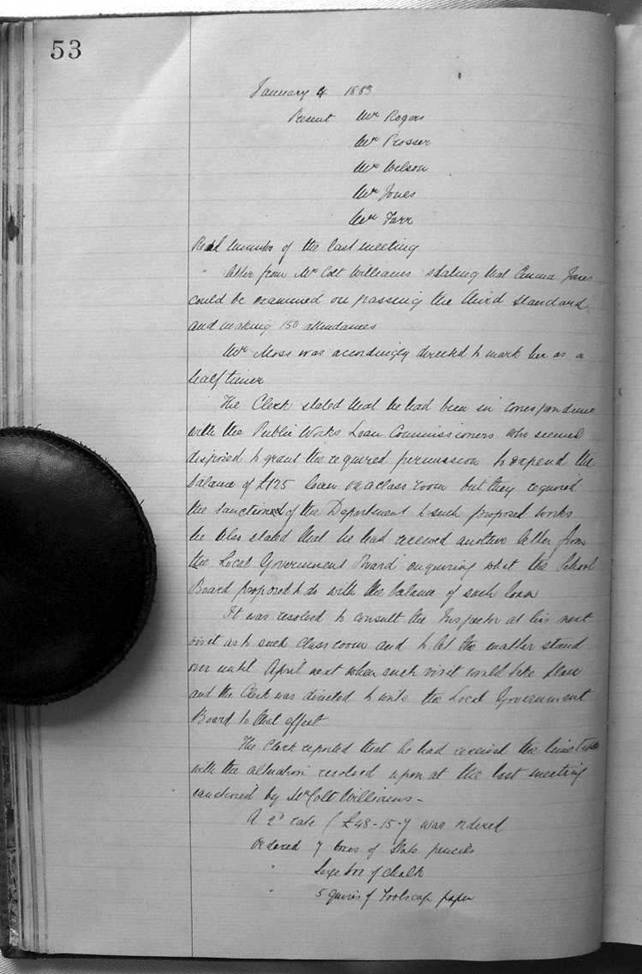 53
January 4 1883
Present Mr Rogers
Mr Prosser
Mr Wilson
Mr Jones
Mr Farr
Read minutes of the last meeting
" letter from Mr Colt Williams stating that Emma Jones
could be examined on passing the third standard
and making 150 attendances
Mr Moss was accordingly directed to mark her as a
half timer
The Clerk stated that he had been in correspondence
with the Public Works Loan Commissioners who seemed
disposed to grant the required permission to expend the
balance of £125 loan on a class room but they required
the sanction of the Department to such proposed works
he also stated that he had received another letter from
the Local Government Board enquiring what the School
Board proposed to do with the balance of such loan
It was resolved to consult the Inspector at his next
visit as to such class room and to let the matter stand
over until April next when such visit would take place
and the Clerk was directed to write the Local Government
Board to that effect
The Clerk reported that he had received the time table
with the alteration resolved upon at the last meeting
sanctioned by Mr Colt Williams -
A 2d rate (£48-15-7) was ordered
Ordered 7 boxes of slate pencils
" Large box of chalk
" 5 quires of Foolscap paper